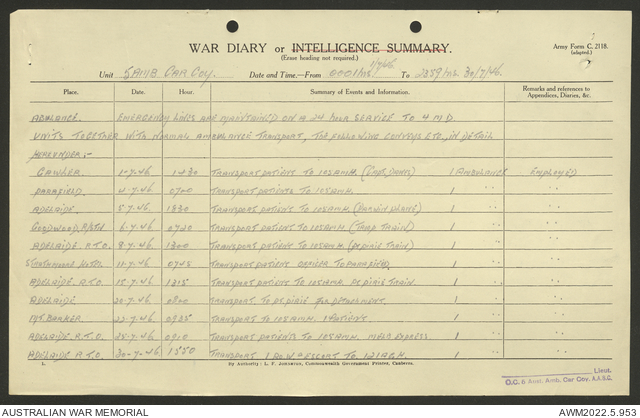 WAR DIARY or INTELLIGENCE SUMMARY.
(Erase heading not required.)
Army Form C. 2118.
(adapted.)
Unit 8 AMB. CAR COY. Date and Time.—From 0001 hrs 1/7/46 To 2359 hrs 30/7/46.
Place. Date. Hour. Summary of Events and Information. Remarks and references to Appendices, Diaries, &c.
ADELAIDE. EMERGENCY LINES ARE MAINTAINED ON A 24 HOUR SERVICE TO 4 M D
UNITS TOGETHER WITH NORMAL AMBULANCE TRANSPORT, THE FOLLOWING CONVOYS ETC, IN DETAIL
HEREUNDER:-
GAWLER 1-7-46 1430 TRANSPORT PATIENT TO 105 A.M.H. 1 AMBULANCE EMPLOYED
PARAFIELD 4-7-46 0700 TRANSPORT PATIENTS TO 105 A.M.H. 1 " "
ADELAIDE 5-7-46 1330 TRANSPORT PATIENT TO 105 A.M.H. (DARWIN PLANE) 1 " "
GOODWOOD R/STN 6-7-46 0720 TRANSPORT PATIENT TO 105 A.M.H. (TROOP TRAIN) 1 " "
ADELAIDE R.T.O. 8-7-46 1300 TRANSPORT PATIENTS TO 105 A.M.H. (PT PIRIE TRAIN) 1 " "
STRATHMORE HOTEL 11-7-46 0745 TRANSPORT PATIENT OFFICER TO PARAFIELD 1 " "
ADELAIDE R.T.O. 15-7-46 1315 TRANSPORT PATIENT TO 105 A.M.H. PT PIRIE TRAIN. 1 " "
ADELAIDE 20-7-46 0800 TRANSPORT TO PT PIRIE FOR DETACHMENT. 1 " "
MT. BARKER 22-7-46 0935 TRANSPORT TO 105 A.M.H. 1 PATIENT. 1 " "
ADELAIDE R.T.O. 25-7-46 0910 TRANSPORT PATIENTS TO 105 A.M.H. MELB EXPRESS. 1 " "
ADELAIDE R.T.O. 30-7-46 1550 TRANSPORT 1 P.O.W. & ESCORT TO 121 A.G.H. 1 " "
By Authority: L. F. Johnston, Commonwealth Government Printer, Canberra.
Lieut.
O.C. 8 Aust. Amb. Car Coy. A.A.S.C.
AUSTRALIAN WAR MEMORIAL
AWM2022.5.953